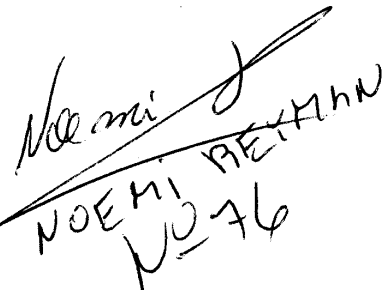 Noemi
NOEMI REIMAN
Nº 76